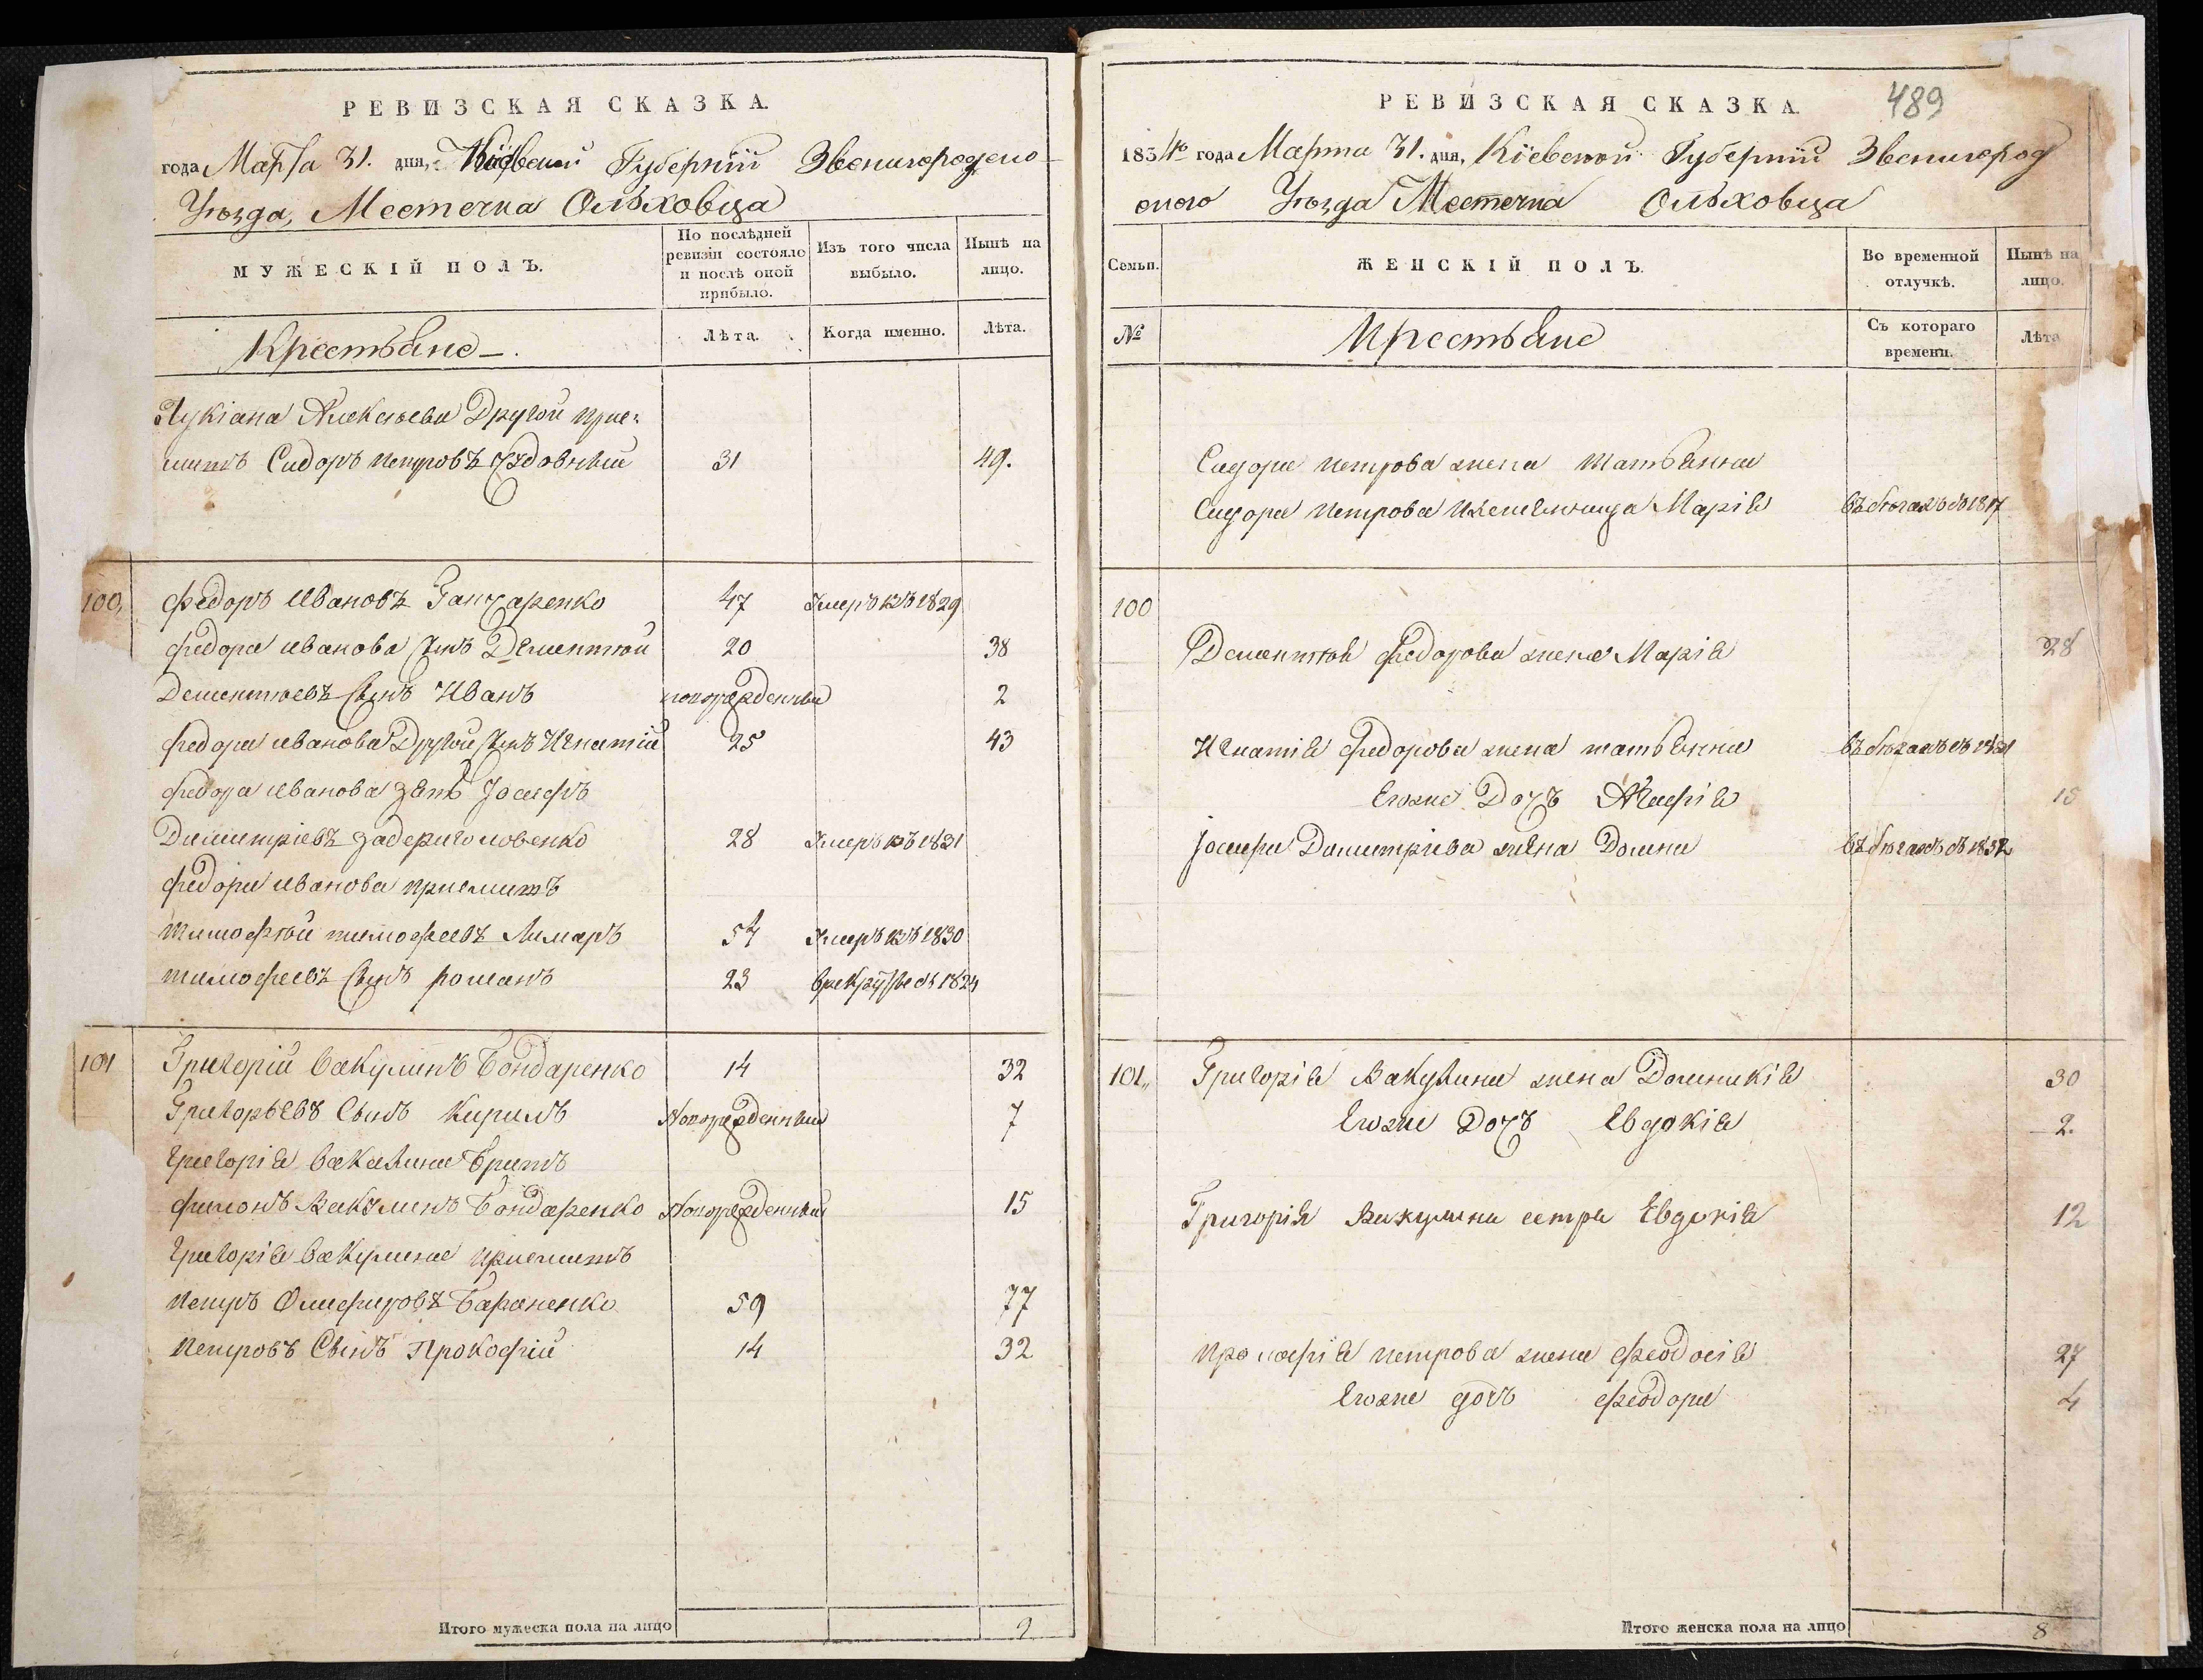 РЕВИЗСКАЯ СКАЗКА.
года Марта 31. дня, Кіевской Губерніи Звенигородско
Уѣзда, Местечка Ольховца
МУЖЕСКІЙ ПОЛЪ.
По послѣдней ревизіи состояло и послѣ оной прибыло.
Изъ того числа выбыло.
Нынѣ на лицо.
Крестьяне
Лѣта.
Когда именно.
Лѣта.
Лукіана Алексѣева Другой прие-
митъ Сидоръ Петровъ 31 49.
100, Федоръ Ивановъ Ганчаренко 47 Умеръ въ 1829
Федора Иванова сынъ Дементій 20 38
Дементѣевъ Сынъ Иванъ новорожденный 2
Федора Иванова Другой сынъ Игнатій 25 43
Федора Иванова зять Іосифъ
Димитріевъ Задериголовенко 28 Умеръ въ 1831
Федора Иванова приемитъ
Тимофѣй Тимофеевъ Лимаръ 54 Умеръ въ 1830
Тимофеевъ Сынъ Романъ 23 врекруты въ 1824
101 Григорій Вакулинъ Бондаренко 14 32
Григорьевъ Сынъ Кирилъ Новорожденный 7
Григорія Вакулина Братъ
Филонъ Вакулинъ Бондаренко Новорожденный 15
Григорія Вакулина приемитъ
Петръ Онуфріровъ Бараненко 59 77
Петровъ Сынъ Прокофій 14 32
Итого мужеска пола на лицо 9
489
РЕВИЗСКАЯ СКАЗКА.
1834го года Марта 31. дня, Кіевской Губерніи Звенигород
ского Уѣзда Местечка Ольховца
Семьи.
ЖЕНСКІЙ ПОЛЪ.
Во временной отлучкѣ.
Нынѣ на лицо.
№
Крестьяне
Съ котораго времени.
Лѣта
Сидора Петрова жена Татьянна
Сидора Петрова племянница Марія въ бѣгахъ съ 1817
100
Дементія Федорова жена Марія 28
Игнатія Федорова жена Татьянна въ бѣгахъ съ 1831
Егоже Дочъ Агафія 15
Іосифа Димитріева жена Домна въ бѣгахъ съ 1832
101,, Григорія Вакулина жена Доминикія 30
Егоже Дочъ Евдокія 2.
Григорія Вакулина сестра Евдокія 12
Прокофія Петрова жена Феодосія 27
Егоже дочъ Феодора 4
Итого женска пола на лицо 8